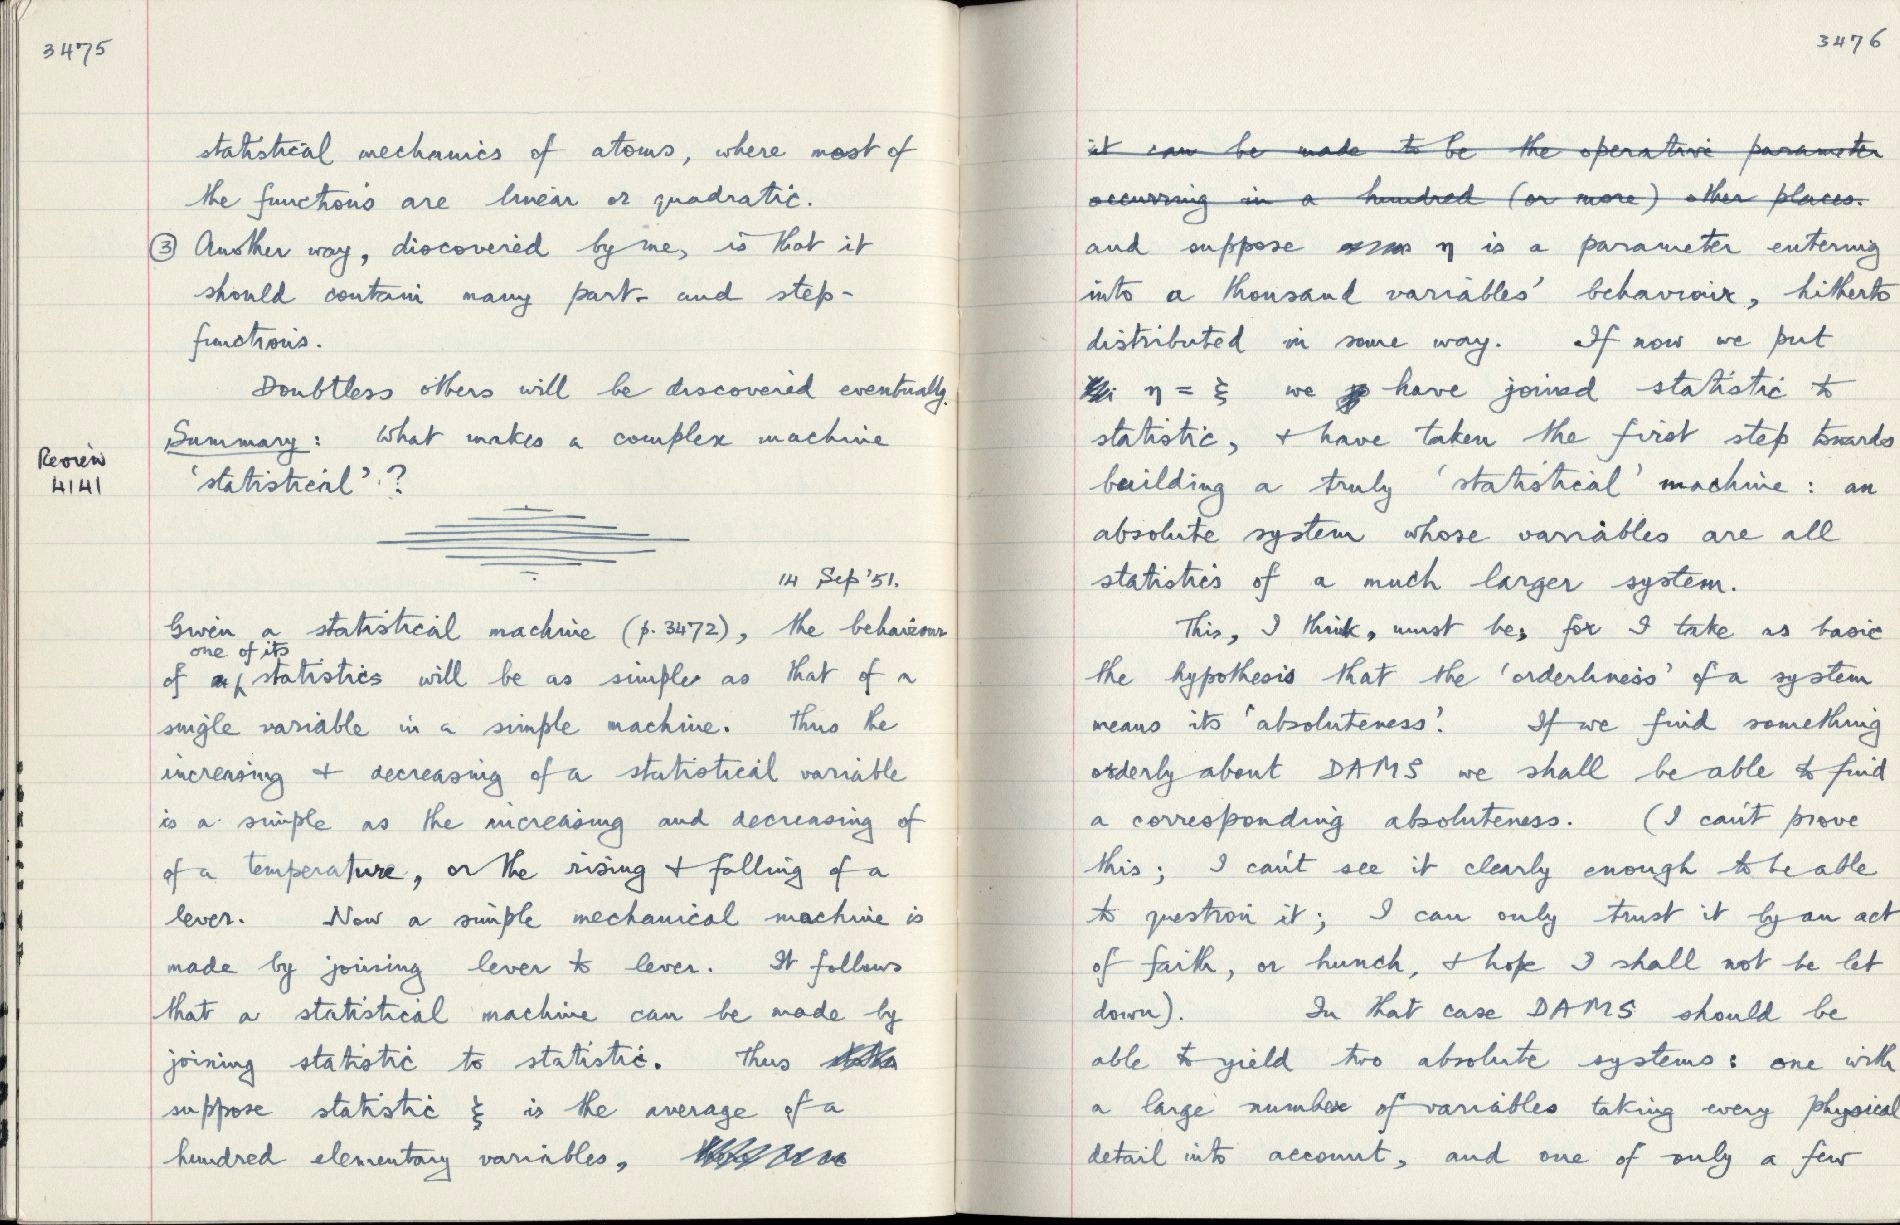 3475
statistical mechanics of atoms, where most of
the functions are linear or quadratic.
③ Another way, discovered by me, is that it
should contain many part- and step-
functions.
Doubtless others will be discovered eventually.
Summary: What makes a complex machine
'statistical'?
Review
4141
14 Sep '51.
Given a statistical machine (p. 3472), the behaviour
one of its
of statistics will be as simple as that of a
single variable in a simple machine. Thus the
increasing & decreasing of a statistical variable
is a simple as the increasing and decreasing of
of a temperature, or the rising & falling of a
lever. Now a simple mechanical machine is
made by joining lever to lever. It follows
that a statistical machine can be made by
joining statistic to statistic. Thus
suppose statistic ξ is the average of a
hundred elementary variables,
3476
it can be made to be the operative parameter
occurring in a hundred (or more) other places.
and suppose η is a parameter entering
into a thousand variables' behaviour, hitherto
distributed in some way. If now we put
η = ξ we have joined statistic to
statistic, & have taken the first step towards
building a truly 'statistical' machine: an
absolute system whose variables are all
statistics of a much larger system.
This, I think, must be; for I take as basic
the hypothesis that the 'orderliness' of a system
means its 'absoluteness'. If we find something
orderly about DAMS we shall be able to find
a corresponding absoluteness. (I can't prove
this; I can't see it clearly enough to be able
to question it; I can only trust it by an act
of faith, or hunch, & hope I shall not be let
down). In that case DAMS should be
able to yield two absolute systems: one with
a large number of variables taking every physical
detail into account, and one of only a few